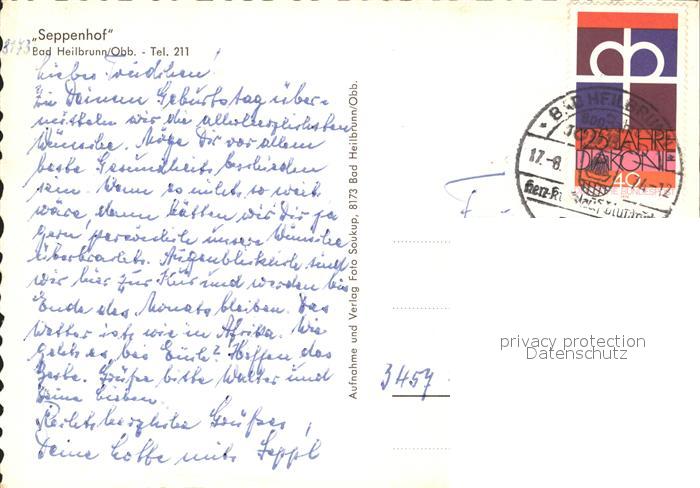 „Seppenhof"
Bad Heilbrunn/Obb. - Tel. 211
8173
Liebes Trudchen!
Zu Deinem Geburtstag über-
mitteln wir die allerherzlichsten
Wünsche. Möge Dir vor allem
beste Gesundheit beschieden
sein. Wenn es nicht so weit
wäre dann hätten wir Dir ja
gern persönlich unsere Wünsche
überbracht. Augenblicklich sind
wir hier zur Kur und werden bis
Ende des Monats bleiben. Das
Wetter ist wie in Afrika. Wie
geht es bei Euch? Hoffen das
Beste. Grüße bitte Walter und
Deine Lieben.
Recht herzliche Grüße,
Deine Lotte mit Seppl
Aufnahme und Verlag Foto Soukup, 8173 Bad Heilbrunn/Obb.
BAD HEILBRUNN
17.-8.
-12
125 JAHRE
DIAKONIE
40
3457
privacy protection
Datenschutz